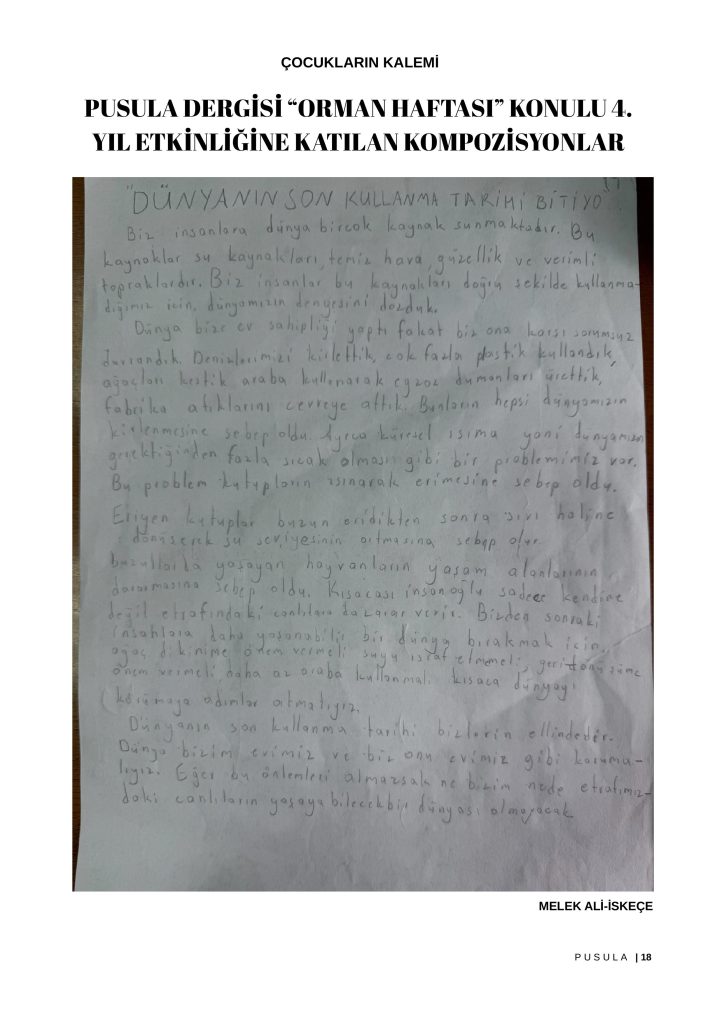 ÇOCUKLARIN KALEMİ
PUSULA DERGİSİ “ORMAN HAFTASI” KONULU 4.
YIL ETKİNLİĞİNE KATILAN KOMPOZİSYONLAR
"DÜNYANIN SON KULLANMA TARİHİ BİTİYO"
Biz insanlara dünya bircok kaynak sunmaktadır. Bu
kaynaklar su kaynakları, temiz hava, güzellik ve verimli
topraklardır. Biz insanlar bu kaynakları doğru sekilde kullanma-
dığımız icin, dünyamızın dengesini bozduk.
Dünya bize ev sahipliği yaptı fakat biz ona karsı sorumsuz
davrandık. Denizlerimizi kirlettik, cok fazla plastik kullandık,
ağaçları kestik araba kullanarak egzoz dumanları ürettik,
fabrika atıklarını cevreye attık. Bunların hepsi dünyamızın
kirlenmesine sebep oldu. Ayrıca küresel ısıma yani dunyamızın
gerektiğinden fazla sıcak olması gibi bir problemimiz var.
Bu problem kutupların ısınarak erimesine sebep oldu.
Eriyen kutuplar buzun eridikten sonra sıvı haline
dönüserek su seviyesinin artmasına sebep olur.
buzullarda yaşayan hayvanların yaşam alanlarının
daralmasına sebep oldu. Kısacası insanoğlu sadece kendine
değil etrafındaki canlılara da zarar verir. Bizden sonraki
insanlara daha yaşanabilir bir dünya bırakmak icin,
ağaç dikimine önem vermeli suyu israf etmemeli, geri dönüşüme
önem vermeli, daha az araba kullanmalı kısaca dünyayı
korumaya adımlar atmalıyız.
Dünyanın son kullanma tarihi bizlerin ellindedir.
Dünya bizim evimiz ve biz onu evimiz gibi koruma-
lıyız. Eğer bu önlemleri almazsak ne bizim nede etrafımız-
daki canlıların yaşayabilecek bir dünyası olmayacak
MELEK ALİ-İSKEÇE
PUSULA | 18